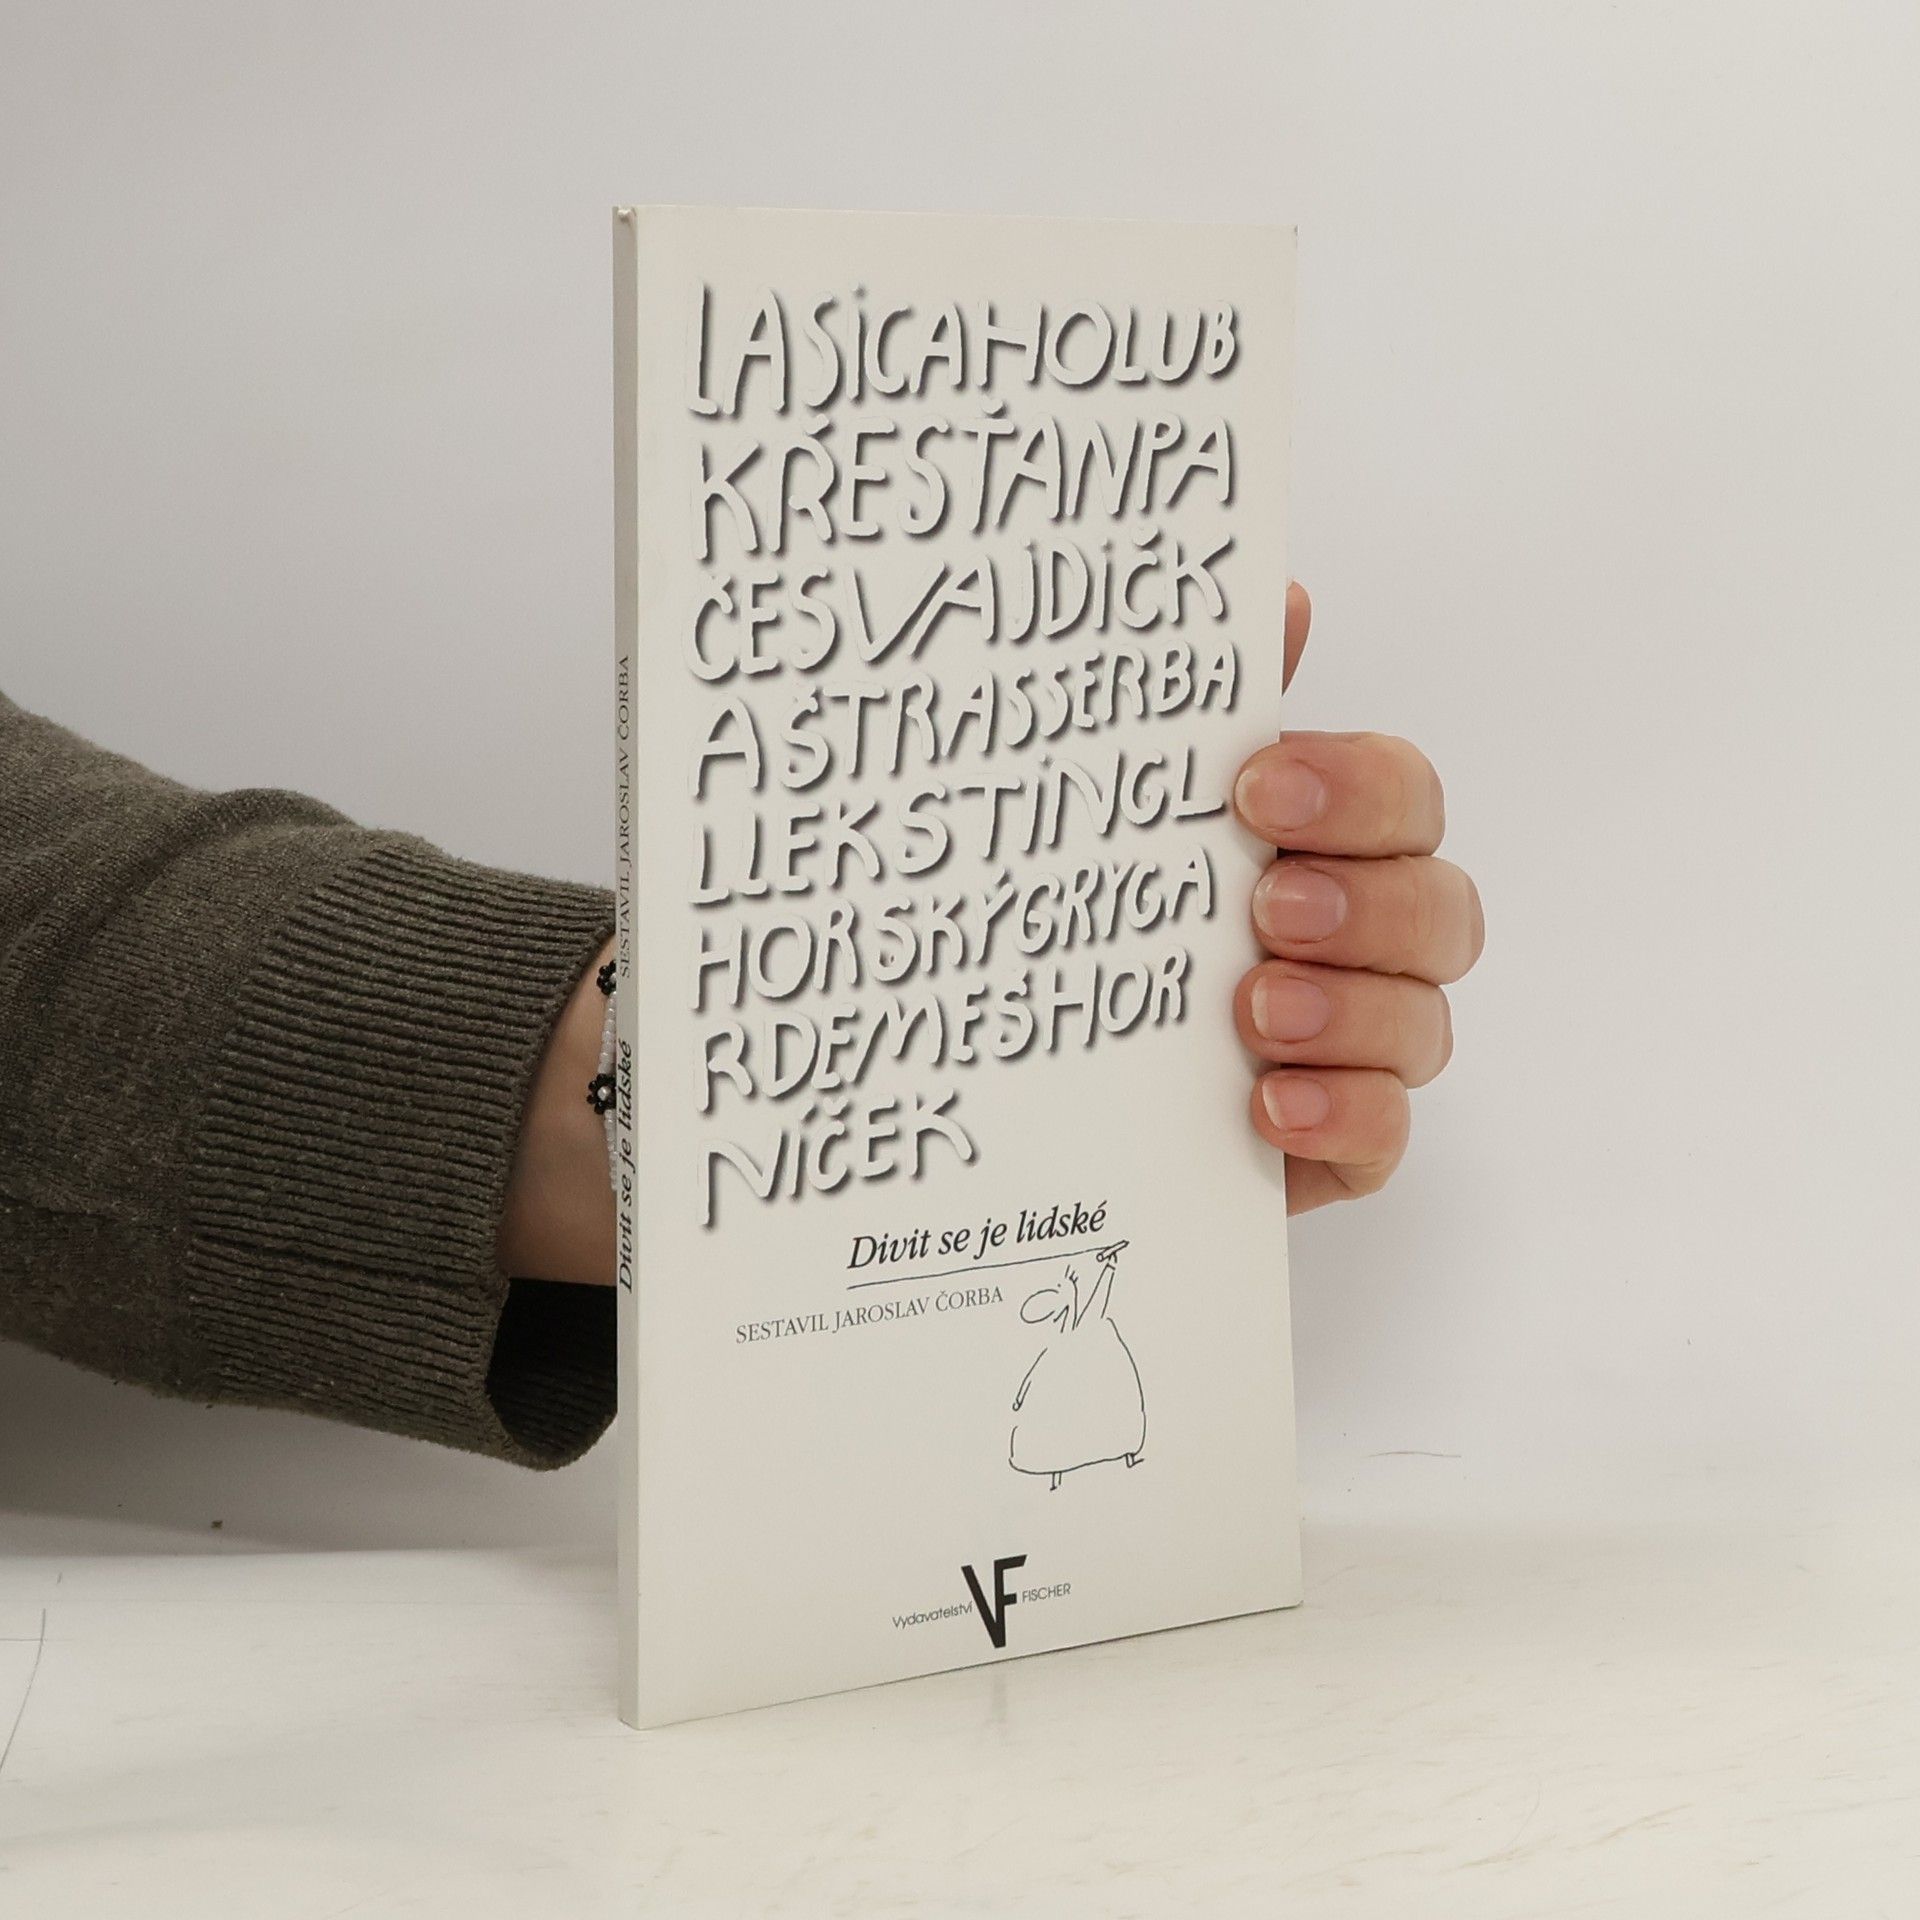 LASICAHOLUB
KŘESŤANPA
ČESVAJDIČK
AŠTRASSERBA
LLEKSTINGL
HORSKÝGRYGA
RDEMEŠHOR
NÍČEK
Divit se je lidské
SESTAVIL JAROSLAV ČORBA
Vydavatelství VF FISCHER
Divit se je lidské SESTAVIL JAROSLAV ČORBA